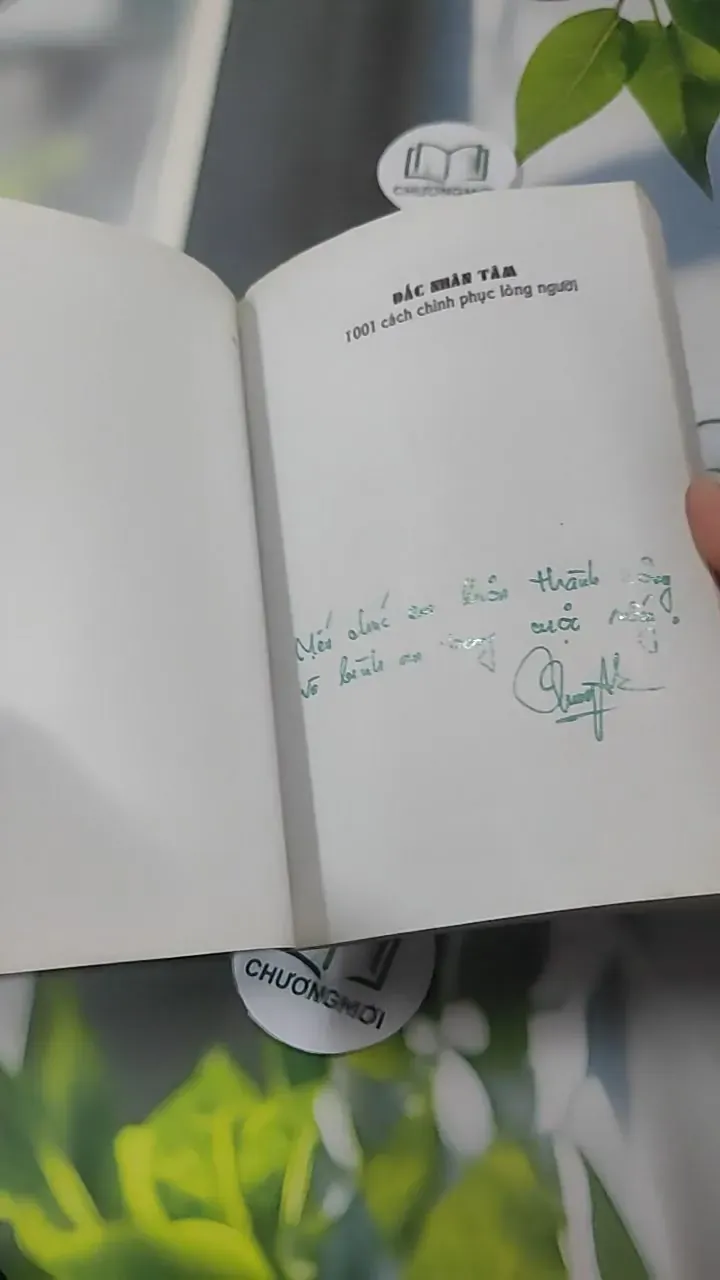 CHƯƠNGMỚI
ĐẮC NHÂN TÂM
1001 cách chinh phục lòng người
Mến chúc thành công
và bình an trong cuộc sống!
CHƯƠNGMỚI